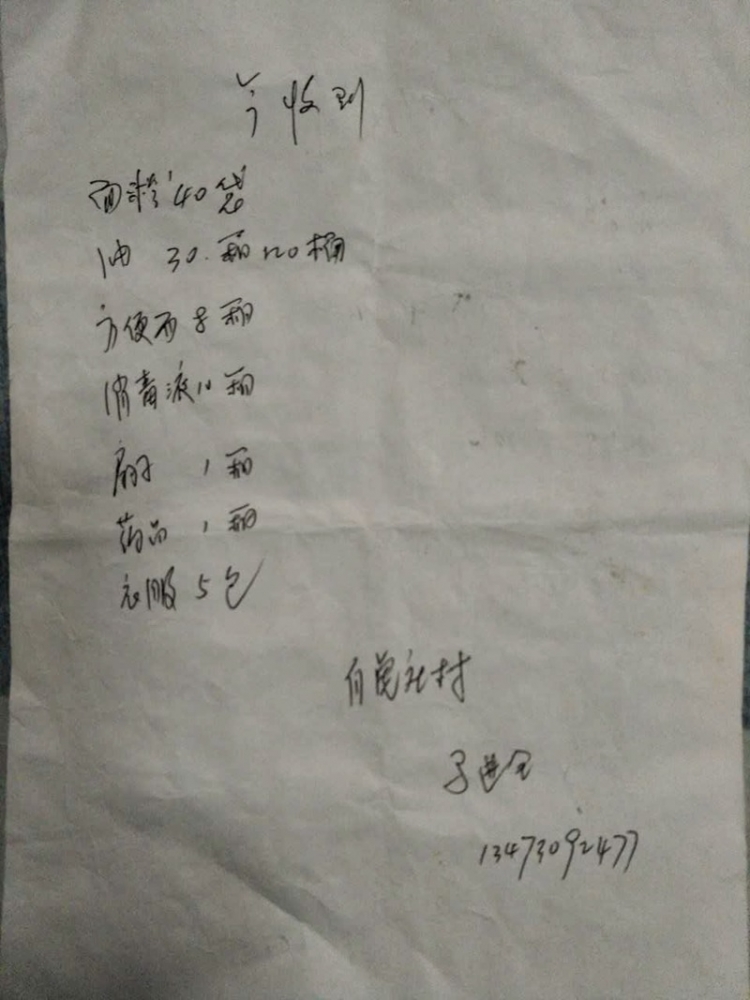 今收到
面粉40袋
油 30.箱120桶
方便面8箱
消毒液10箱
1箱
药品 1箱
衣服5包
村
13473092477